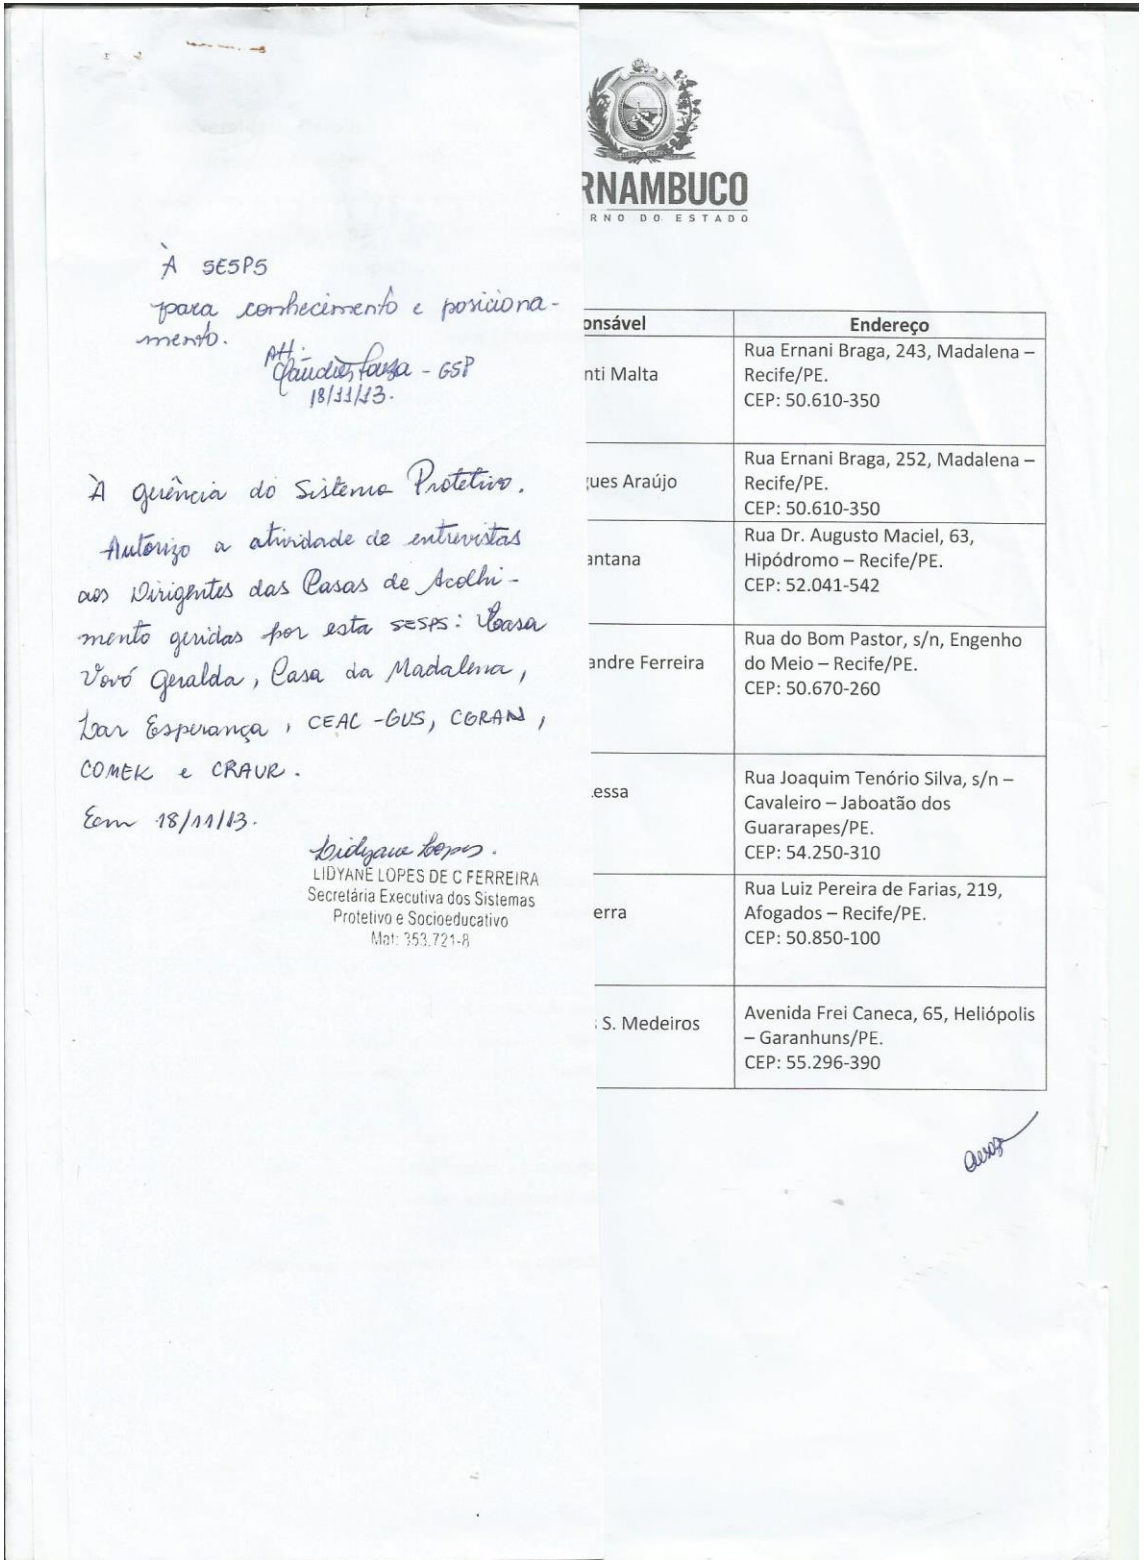 À SESPS
para conhecimento e posiciona-
mento.
Att.
Souza - GSP
18/11/13.
À gerência do Sistema Protetivo.
Autorizo a atividade de entrevistas
aos Dirigentes das Casas de Acolhi-
mento geridas por esta SESPS: Casa
Vovó Geralda, Casa da Madalena,
Lar Esperança, CEAC-GUS, CGRAN,
COMEK e CRAUR.
Em 18/11/13.
Lidyane Lopes.
LIDYANE LOPES DE C FERREIRA
Secretária Executiva dos Sistemas
Protetivo e Socioeducativo
Mat: 353.721-8
RNAMBUCO
RNO DO ESTADO
onsável Endereço
nti Malta
Rua Ernani Braga, 243, Madalena –
Recife/PE.
CEP: 50.610-350
gues Araújo
Rua Ernani Braga, 252, Madalena –
Recife/PE.
CEP: 50.610-350
antana
Rua Dr. Augusto Maciel, 63,
Hipódromo – Recife/PE.
CEP: 52.041-542
andre Ferreira
Rua do Bom Pastor, s/n, Engenho
do Meio – Recife/PE.
CEP: 50.670-260
Lessa
Rua Joaquim Tenório Silva, s/n –
Cavaleiro – Jaboatão dos
Guararapes/PE.
CEP: 54.250-310
erra
Rua Luiz Pereira de Farias, 219,
Afogados – Recife/PE.
CEP: 50.850-100
S. Medeiros
Avenida Frei Caneca, 65, Heliópolis
– Garanhuns/PE.
CEP: 55.296-390